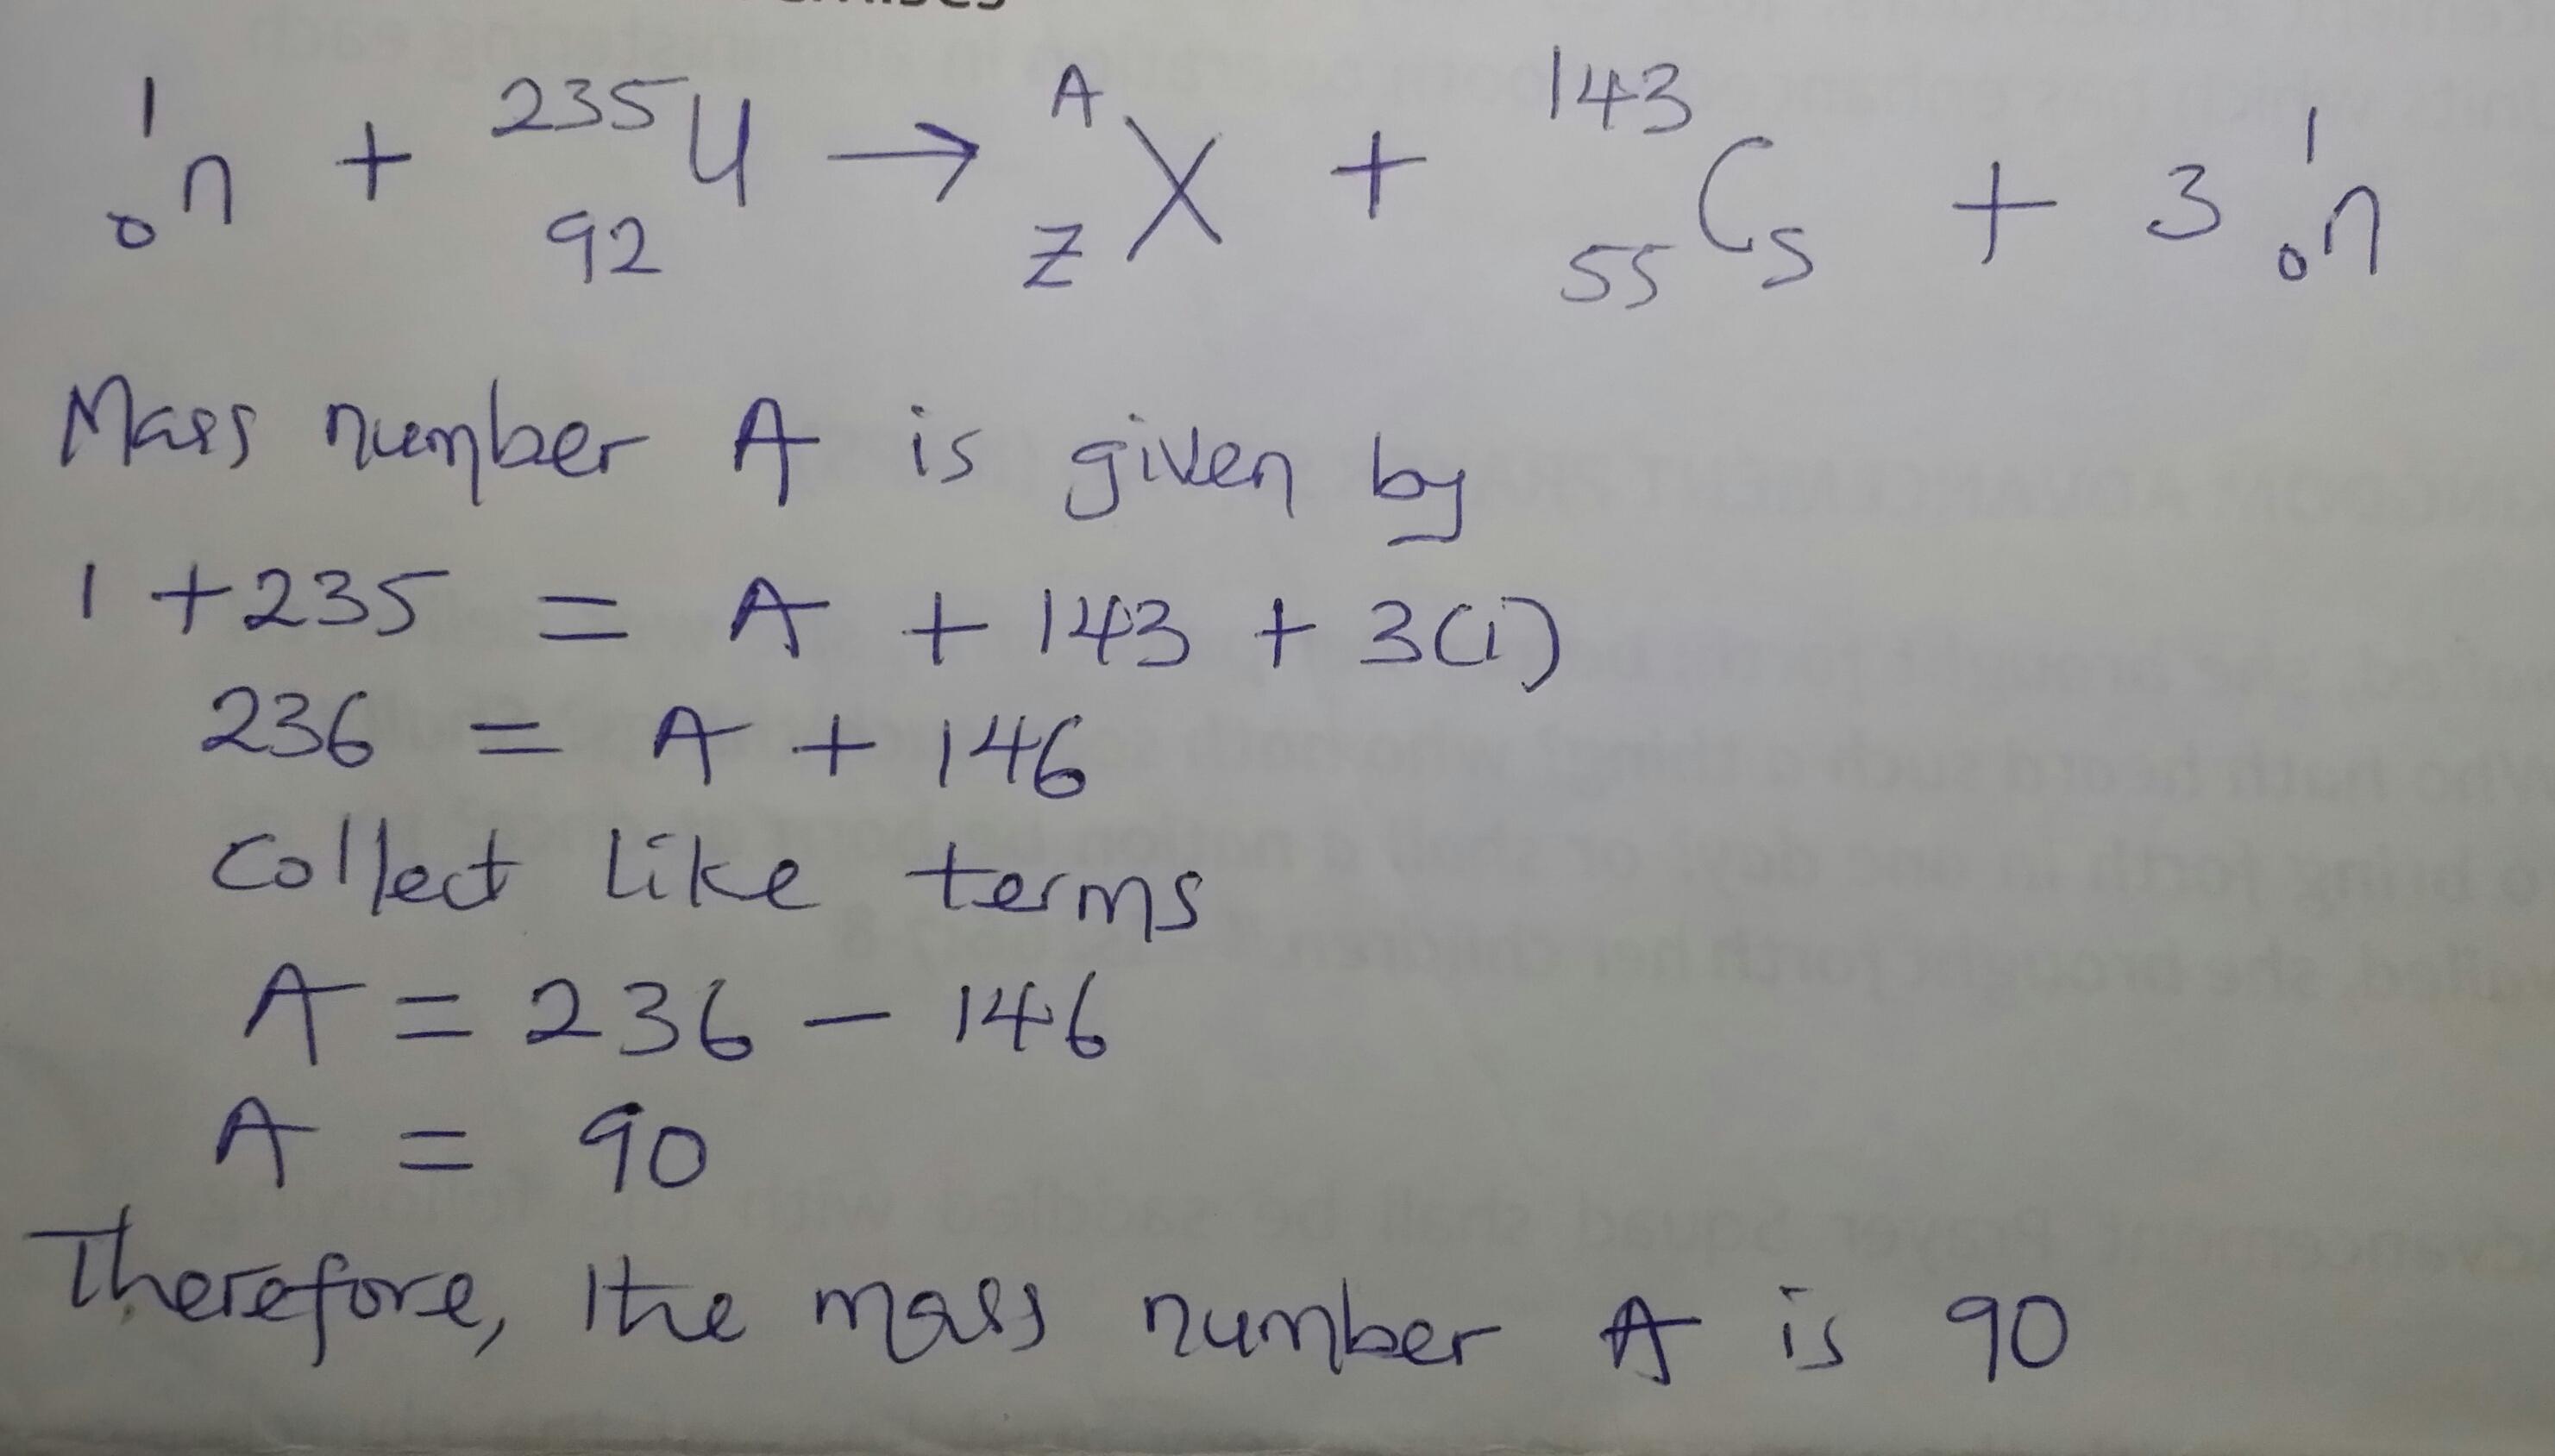 ¹₀n + ²³⁵₉₂U → ᴬ_Z X + ¹⁴³₅₅Cs + 3 ¹₀n
Mass number A is given by
1 + 235 = A + 143 + 3(1)
236 = A + 146
Collect like terms
A = 236 - 146
A = 90
Therefore, the mass number A is 90